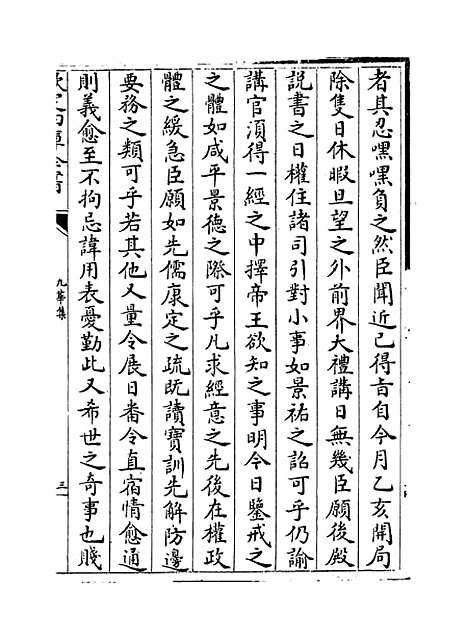 者其忍嘿嘿負之然臣聞近已得㫖自今月乙亥開局
除隻日休暇旦望之外前界大禮講日無幾臣願後殿
説書之日權住諸司引對小事如景祐之詔可乎仍諭
講官湏得一經之中擇帝王欲知之事明今日鑒戒之
之體如咸平景德之際可乎凡求經意之先後在權政
體之緩急臣願如先儒康定之疏既讀寳訓先解防邊
要務之類可乎若其他又量令展日番令直宿情愈通
則義愈至不拘忌諱用表憂勤此又希世之奇事也賤
欽定四庫全書
九華集
三